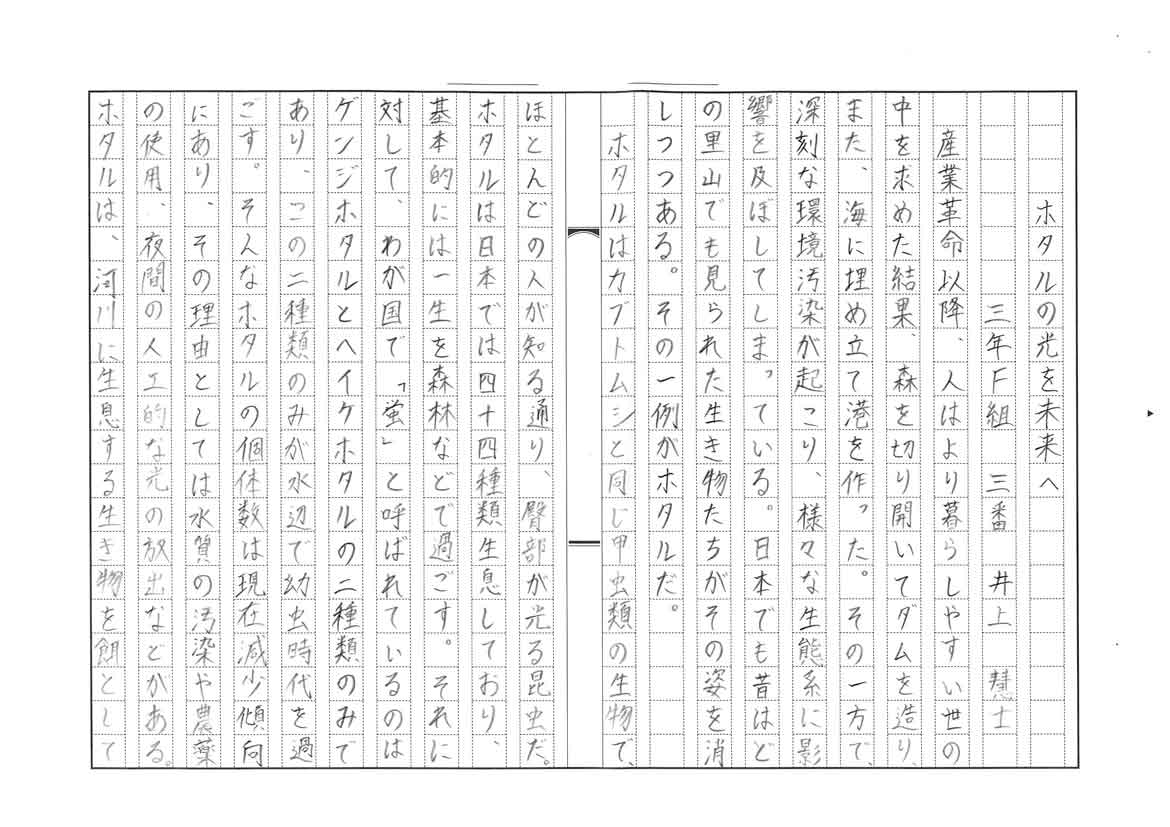 ホタルの光を未来へ
三年F組 三番 井上 慧士
産業革命以降、人はより暮らしやすい世の
中を求めた結果、森を切り開いてダムを造り、
また、海に埋め立て港を作った。その一方で、
深刻な環境汚染が起こり、様々な生態系に影
響を及ぼしてしまっている。日本でも昔はど
の里山でも見られた生き物たちがその姿を消
しつつある。その一例がホタルだ。
ホタルはカブトムシと同じ甲虫類の生物で、
ほとんどの人が知る通り、臀部が光る昆虫だ。
ホタルは日本では四十四種類生息しており、
基本的には一生を森林などで過ごす。それに
対して、わが国で「蛍」と呼ばれているのは
ゲンジホタルとヘイケホタルの二種類のみで
あり、この二種類のみが水辺で幼虫時代を過
ごす。そんなホタルの個体数は現在減少傾向
にあり、その理由としては水質の汚染や農薬
の使用、夜間の人工的な光の放出などがある。
ホタルは、河川に生息する生き物を餌として